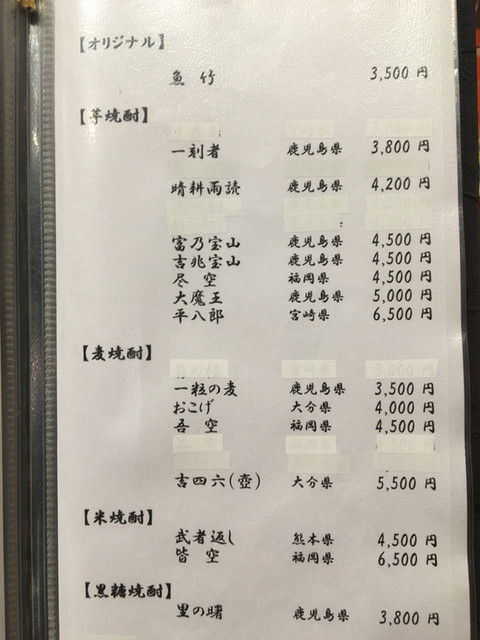 【オリジナル】
魚竹 3,500 円
【芋焼酎】
一刻者 鹿児島県 3,800 円
晴耕雨読 鹿児島県 4,200 円
富乃宝山 鹿児島県 4,500 円
吉兆宝山 鹿児島県 4,500 円
尽空 福岡県 4,500 円
大魔王 鹿児島県 5,000 円
平八郎 宮崎県 6,500 円
【麦焼酎】
3,000 円
一粒の麦 鹿児島県 3,500 円
おこげ 大分県 4,000 円
吾空 福岡県 4,500 円
福岡県
吉四六(壺) 大分県 5,500 円
【米焼酎】
武者返し 熊本県 4,500 円
皆空 福岡県 6,500 円
【黒糖焼酎】
里の曙 鹿児島県 3,800 円